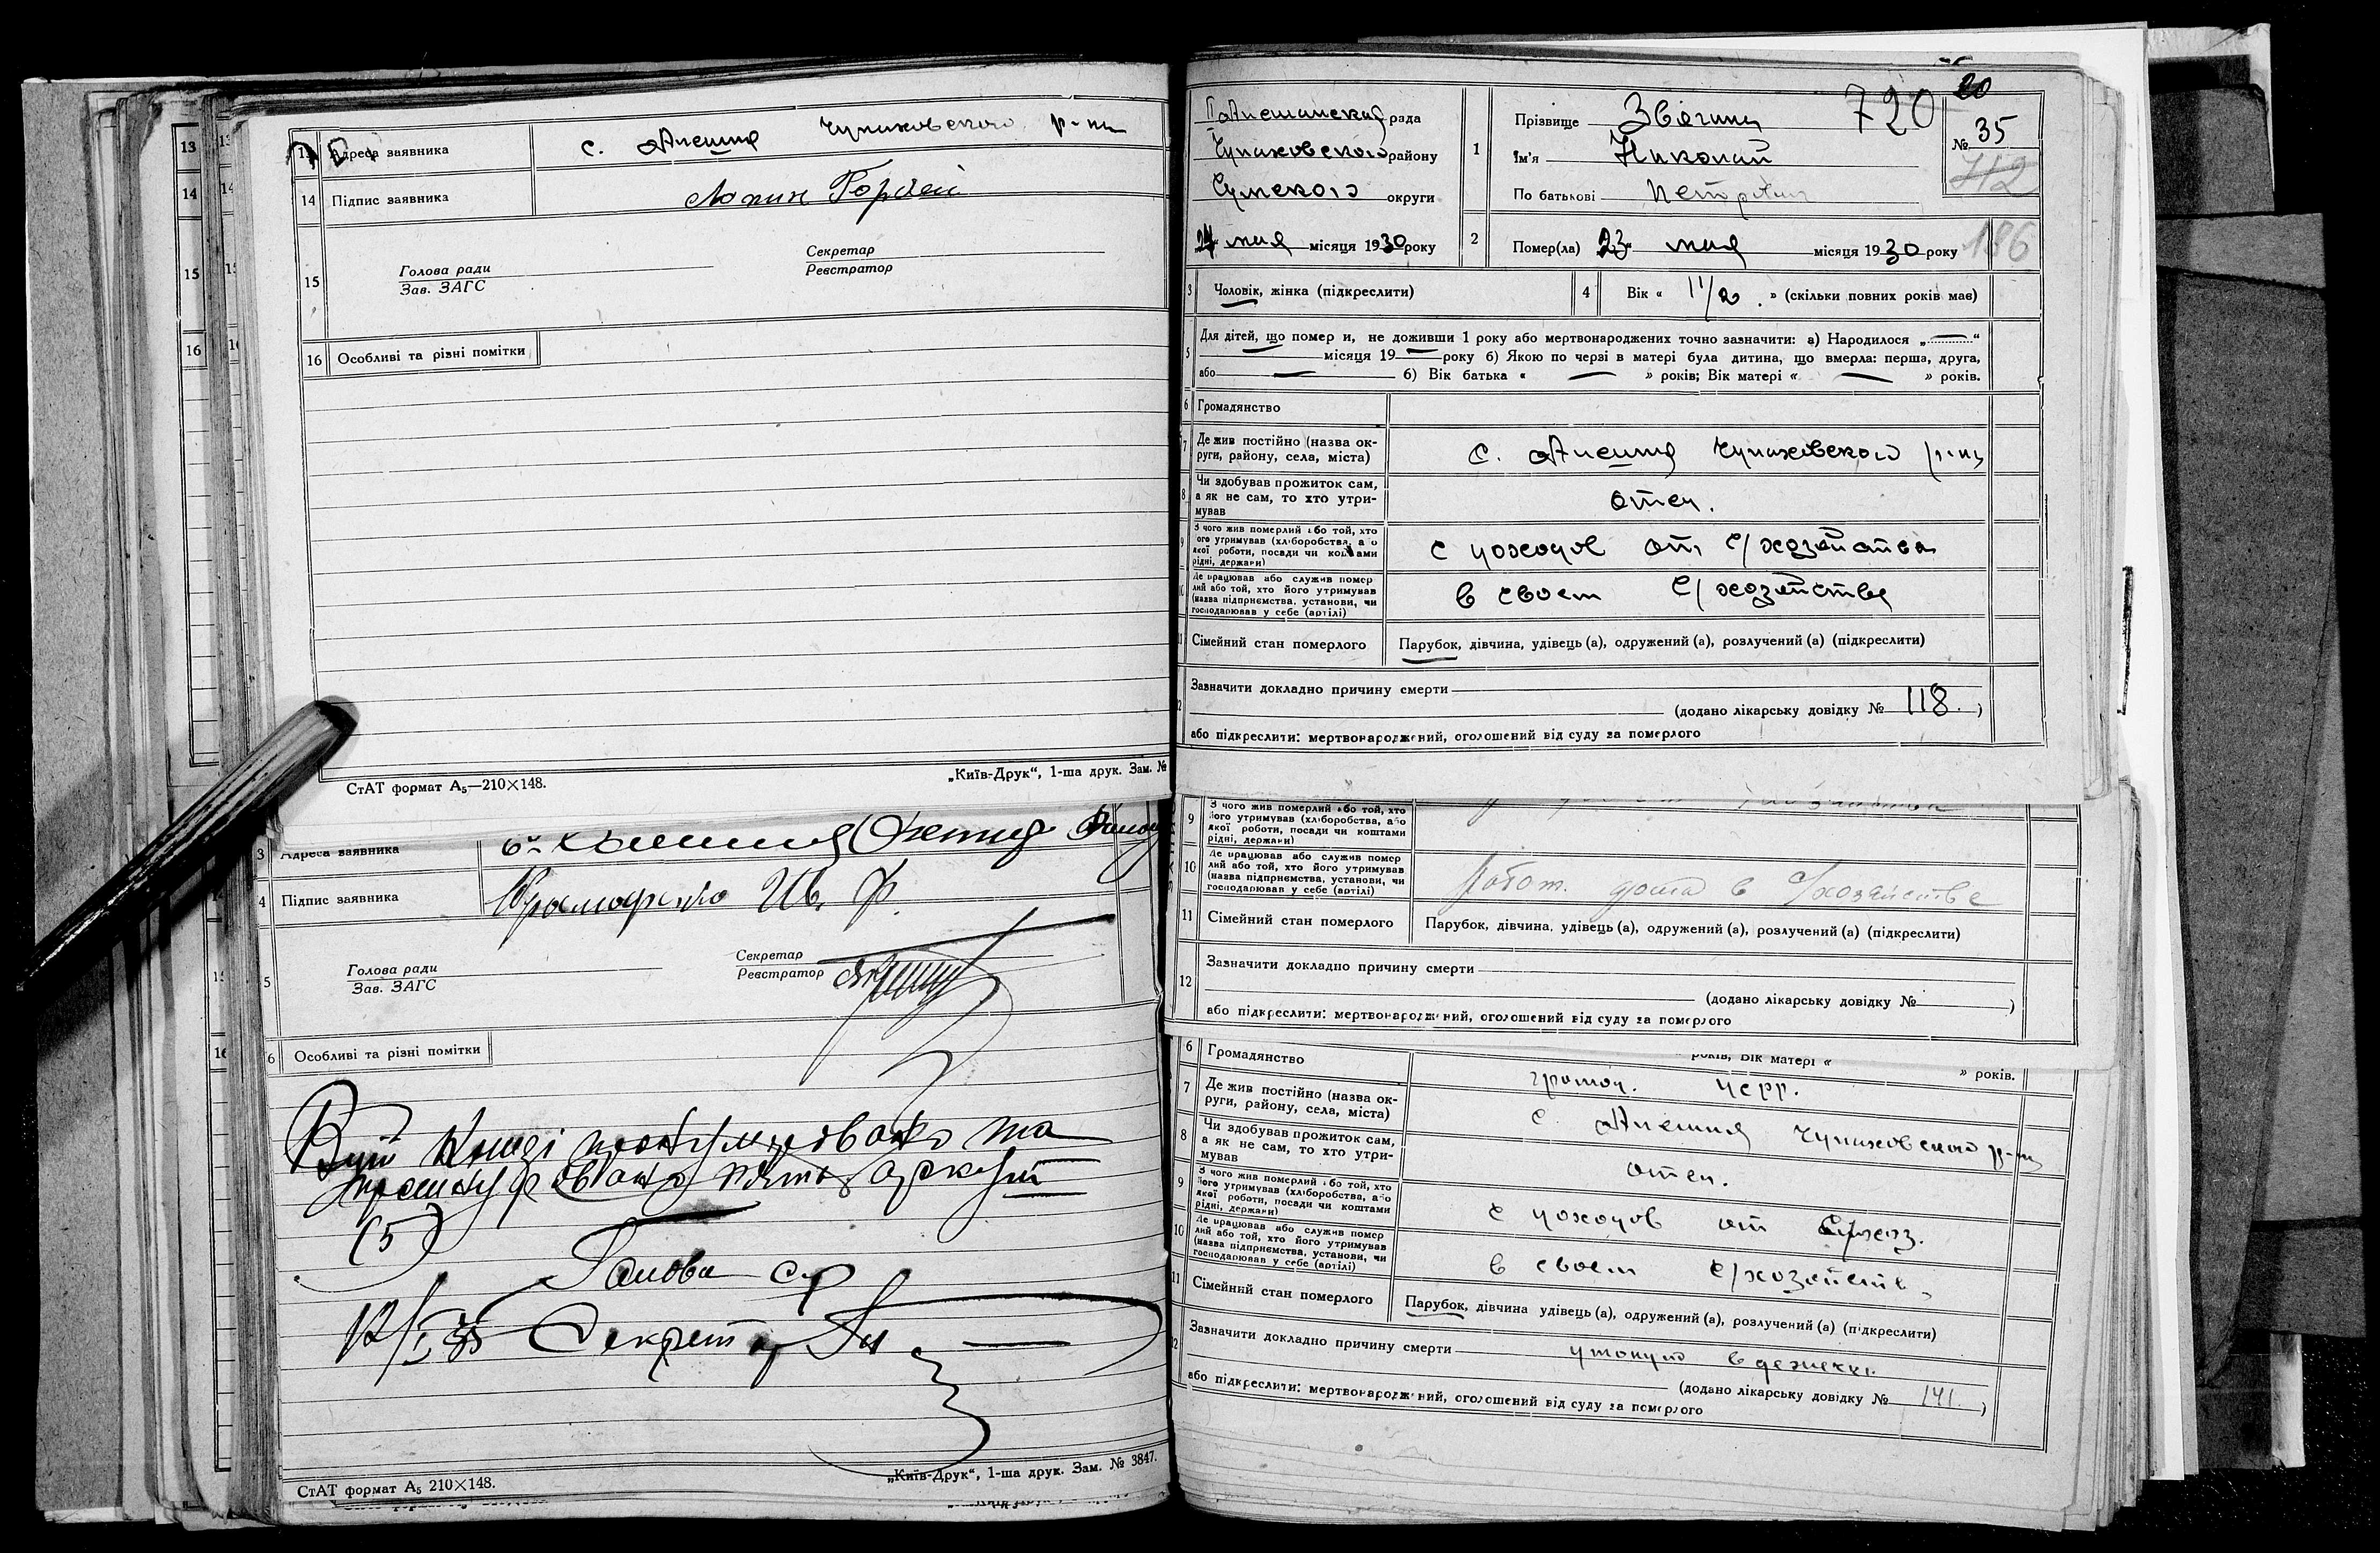 13 Адреса заявника с. Алешня Чупаховского р-на
14 Підпис заявника Гордей
15 Голова ради
Зав. ЗАГС
Секретар
Реєстратор
16 Особливі та різні помітки
СтАТ формат А₅—210×148.
„Київ-Друк“, 1-ша друк. Зам. №
Адреса заявника
4 Підпис заявника Крамаренко Ив. Ф.
5 Голова ради
Зав. ЗАГС
Секретар
Реєстратор
6 Особливі та різні помітки
В цій книзі пронумеровано та
прошнуровано п'ять аркушів
(5)
Голова с/р
12/I 35 Секретар
СтАТ формат А₅ 210×148.
„Київ-Друк“, 1-ша друк. Зам. № 3847.
20
720
рада
Чупаховского району
Сумского округи
24 мая місяця 1930 року
1 Прізвище Звягин
Ім'я Николай
По батькові
№ 35
712
2 Помер(ла) 23 мая місяця 1930 року
186
3 Чоловік, жінка (підкреслити)
4 Вік « 1 1/2 » (скільки повних років має)
5 Для дітей, що помер и, не доживши 1 року або мертвонароджених точно зазначити: а) Народилося „ — “
— місяця 19 — року б) Якою по черзі в матері була дитина, що вмерла: перша, друга,
або — б) Вік батька « — » років; Вік матері « — » років.
6 Громадянство
7 Де жив постійно (назва ок-
руги, району, села, міста) с. Алешня Чупаховского р-на
8 Чи здобував прожиток сам,
а як не сам, то хто утри-
мував отец.
9 З чого жив померлий або той, хто
його утримував (хліборобства, або
якої роботи, посади чи коштами
рідні, держави) с доходов от с/хозяйства
10 Де працював або служив помер
лий або той, хто його утримував
(назва підприємства, установи, чи
господарював у себе (артілі) в своем с/хозяйстве
11 Сімейний стан померлого Парубок, дівчина, удівець (а), одружений (а), розлучений (а) (підкреслити)
12 Зазначити докладно причину смерти
(додано лікарську довідку № 118. )
або підкреслити: мертвонароджений, оголошений від суду за померлого
9 З чого жив померлий або той, хто
його утримував (хліборобства, або
якої роботи, посади чи коштами
рідні, держави)
10 Де працював або служив помер
лий або той, хто його утримував
(назва підприємства, установи, чи
господарював у себе (артілі) Работ. дома в с/хозяйстве
11 Сімейний стан померлого Парубок, дівчина, удівець (а), одружений (а), розлучений (а) (підкреслити)
12 Зазначити докладно причину смерти
(додано лікарську довідку № )
або підкреслити: мертвонароджений, оголошений від суду за померлого
років; Вік матері « » років.
6 Громадянство
7 Де жив постійно (назва ок-
руги, району, села, міста) с. Алешня Чупаховского р-на
8 Чи здобував прожиток сам,
а як не сам, то хто утри-
мував отец.
9 З чого жив померлий або той, хто
його утримував (хліборобства, або
якої роботи, посади чи коштами
рідні, держави) с доходов от с/хоз.
10 Де працював або служив помер
лий або той, хто його утримував
(назва підприємства, установи, чи
господарював у себе (артілі) в своем с/хозяйств
11 Сімейний стан померлого Парубок, дівчина удівець (а), одружений (а), розлучений (а) (підкреслити)
12 Зазначити докладно причину смерти утонул
(додано лікарську довідку № 141. )
або підкреслити: мертвонароджений, оголошений від суду за померлого